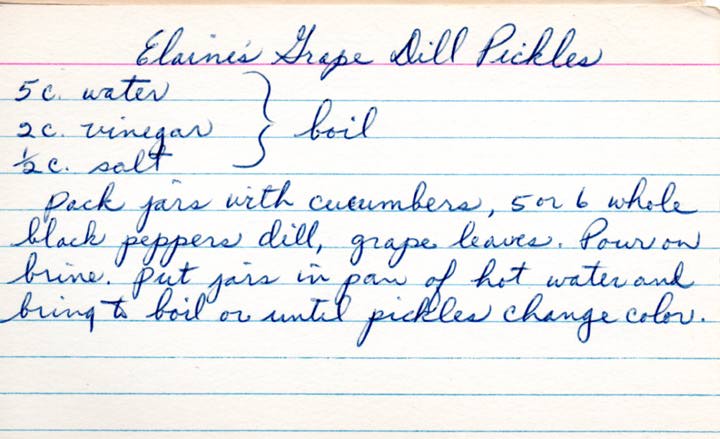 Elaine's Grape Dill Pickles
5 c. water
2 c. vinegar } boil
½ c. salt
Pack jars with cucumbers, 5 or 6 whole
black peppers dill, grape leaves. Pour on
brine. Put jars in pan of hot water and
bring to boil or until pickles change color.